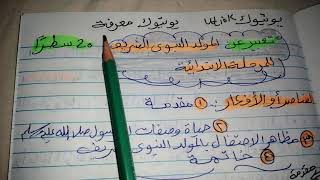 يوتيوك معرفة يوتيوك
تعبير عن المولد النبوي الشريف 20 سطرًا
المرحلة الابتدائية
العناصر أو الأفكار: ① مقدمة
② حياة وصفات الرسول صلى الله عليه وسلم
③ مظاهر الاحتفال بالمولد النبوي الشريف
④ خاتمة
مقدمة